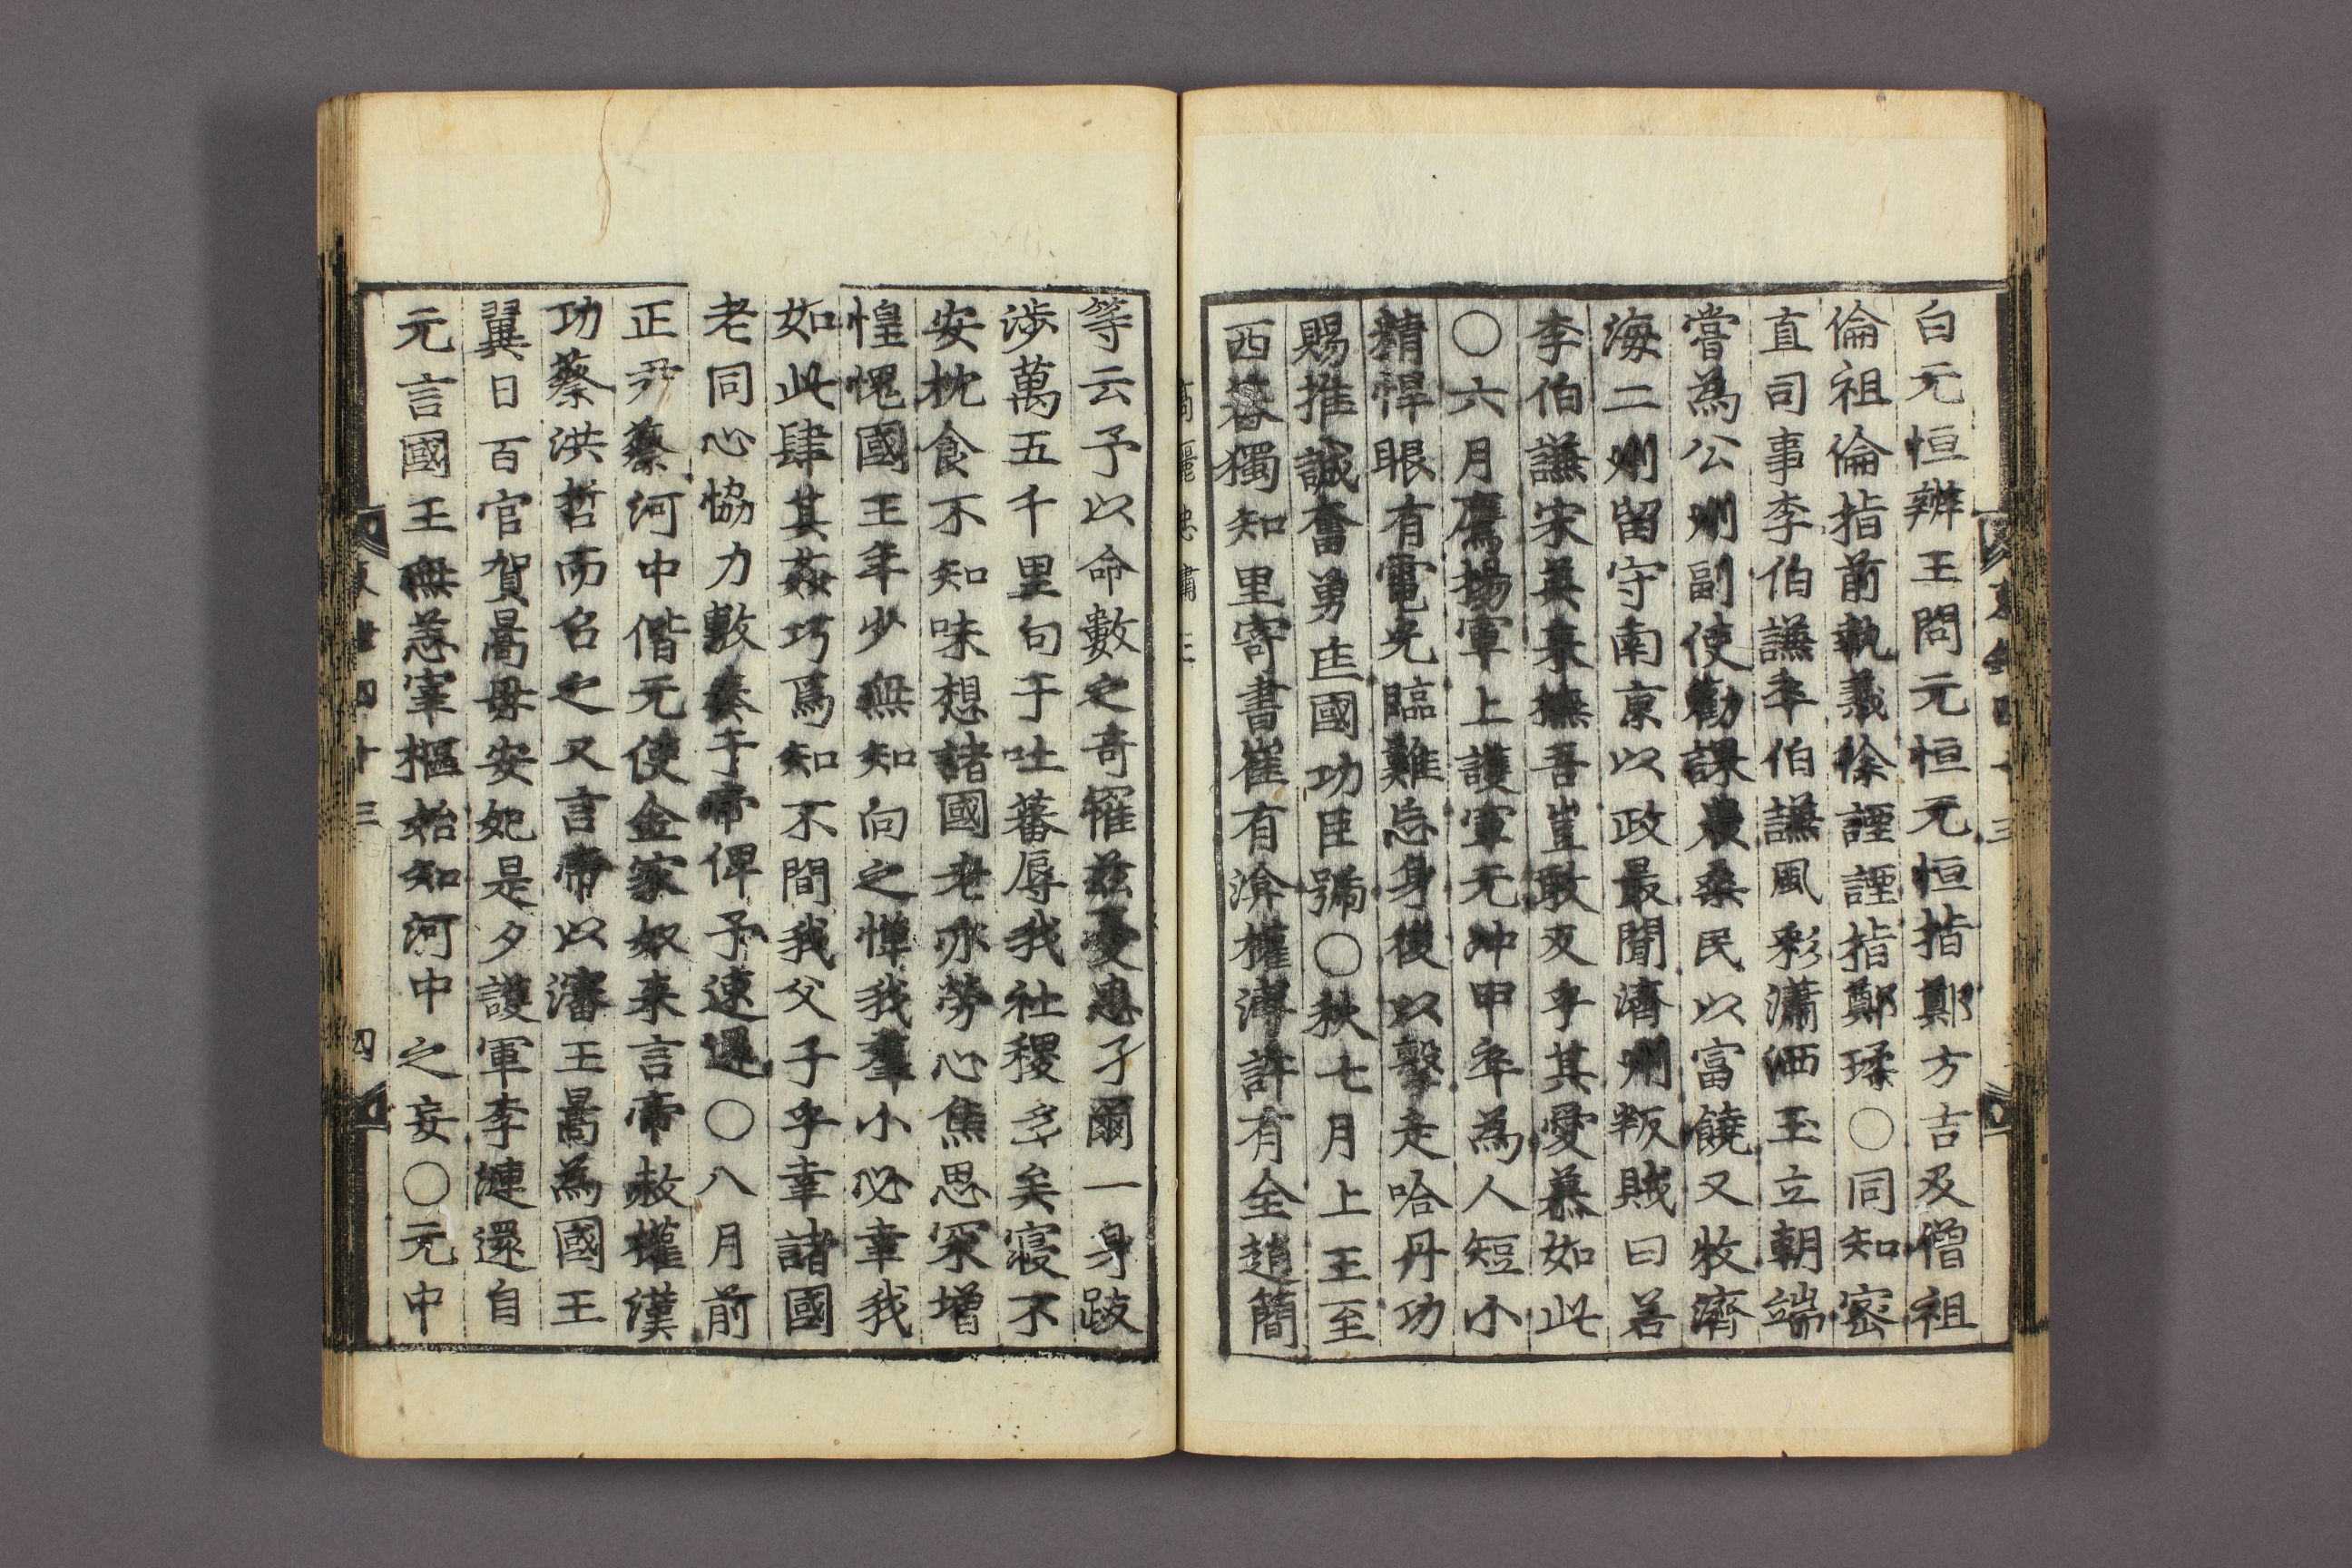 白元恒辨王問元恒元恒指鄭方吉及僧祖
倫祖倫指前執義徐諲諲指鄭瑈○同知密
直司事李伯謙卒伯謙風彩瀟洒玉立朝端
嘗為公州副使勸課農桑民以富饒又牧濟
海二州留守南京以政最聞濟州叛賊曰若
李伯謙宋英来撫吾豈敢叉乎其愛慕如此
○六月鷹揚軍上護軍元冲甲卒為人短小
精悍眼有電光臨難忘身後以擊走哈丹功
賜推誠奮勇匡國功臣號○秋七月上王至
西蕃獨知里寄書崔有渰權溥許有全趙簡
等云予以命數之奇罹茲憂患孑爾一身跋
渉萬五千里向于吐蕃辱我社稷多矣寝不
安枕食不知味想諸國老亦勞心焦思罙增
惶愧國王年少無知向之憚我羣小必幸我
如此肆其姦巧爲知不間我父子乎幸諸國
老同心恊力敷奏于帝俾予速還○八月前
正尹蔡河中偕元使金家奴来言帝赦權漢
功蔡洪哲而召之又言帝以瀋王暠為國王
翼日百官賀暠母安妃是夕護軍李漣還自
元言國王無恙宰樞始知河中之妄○元中